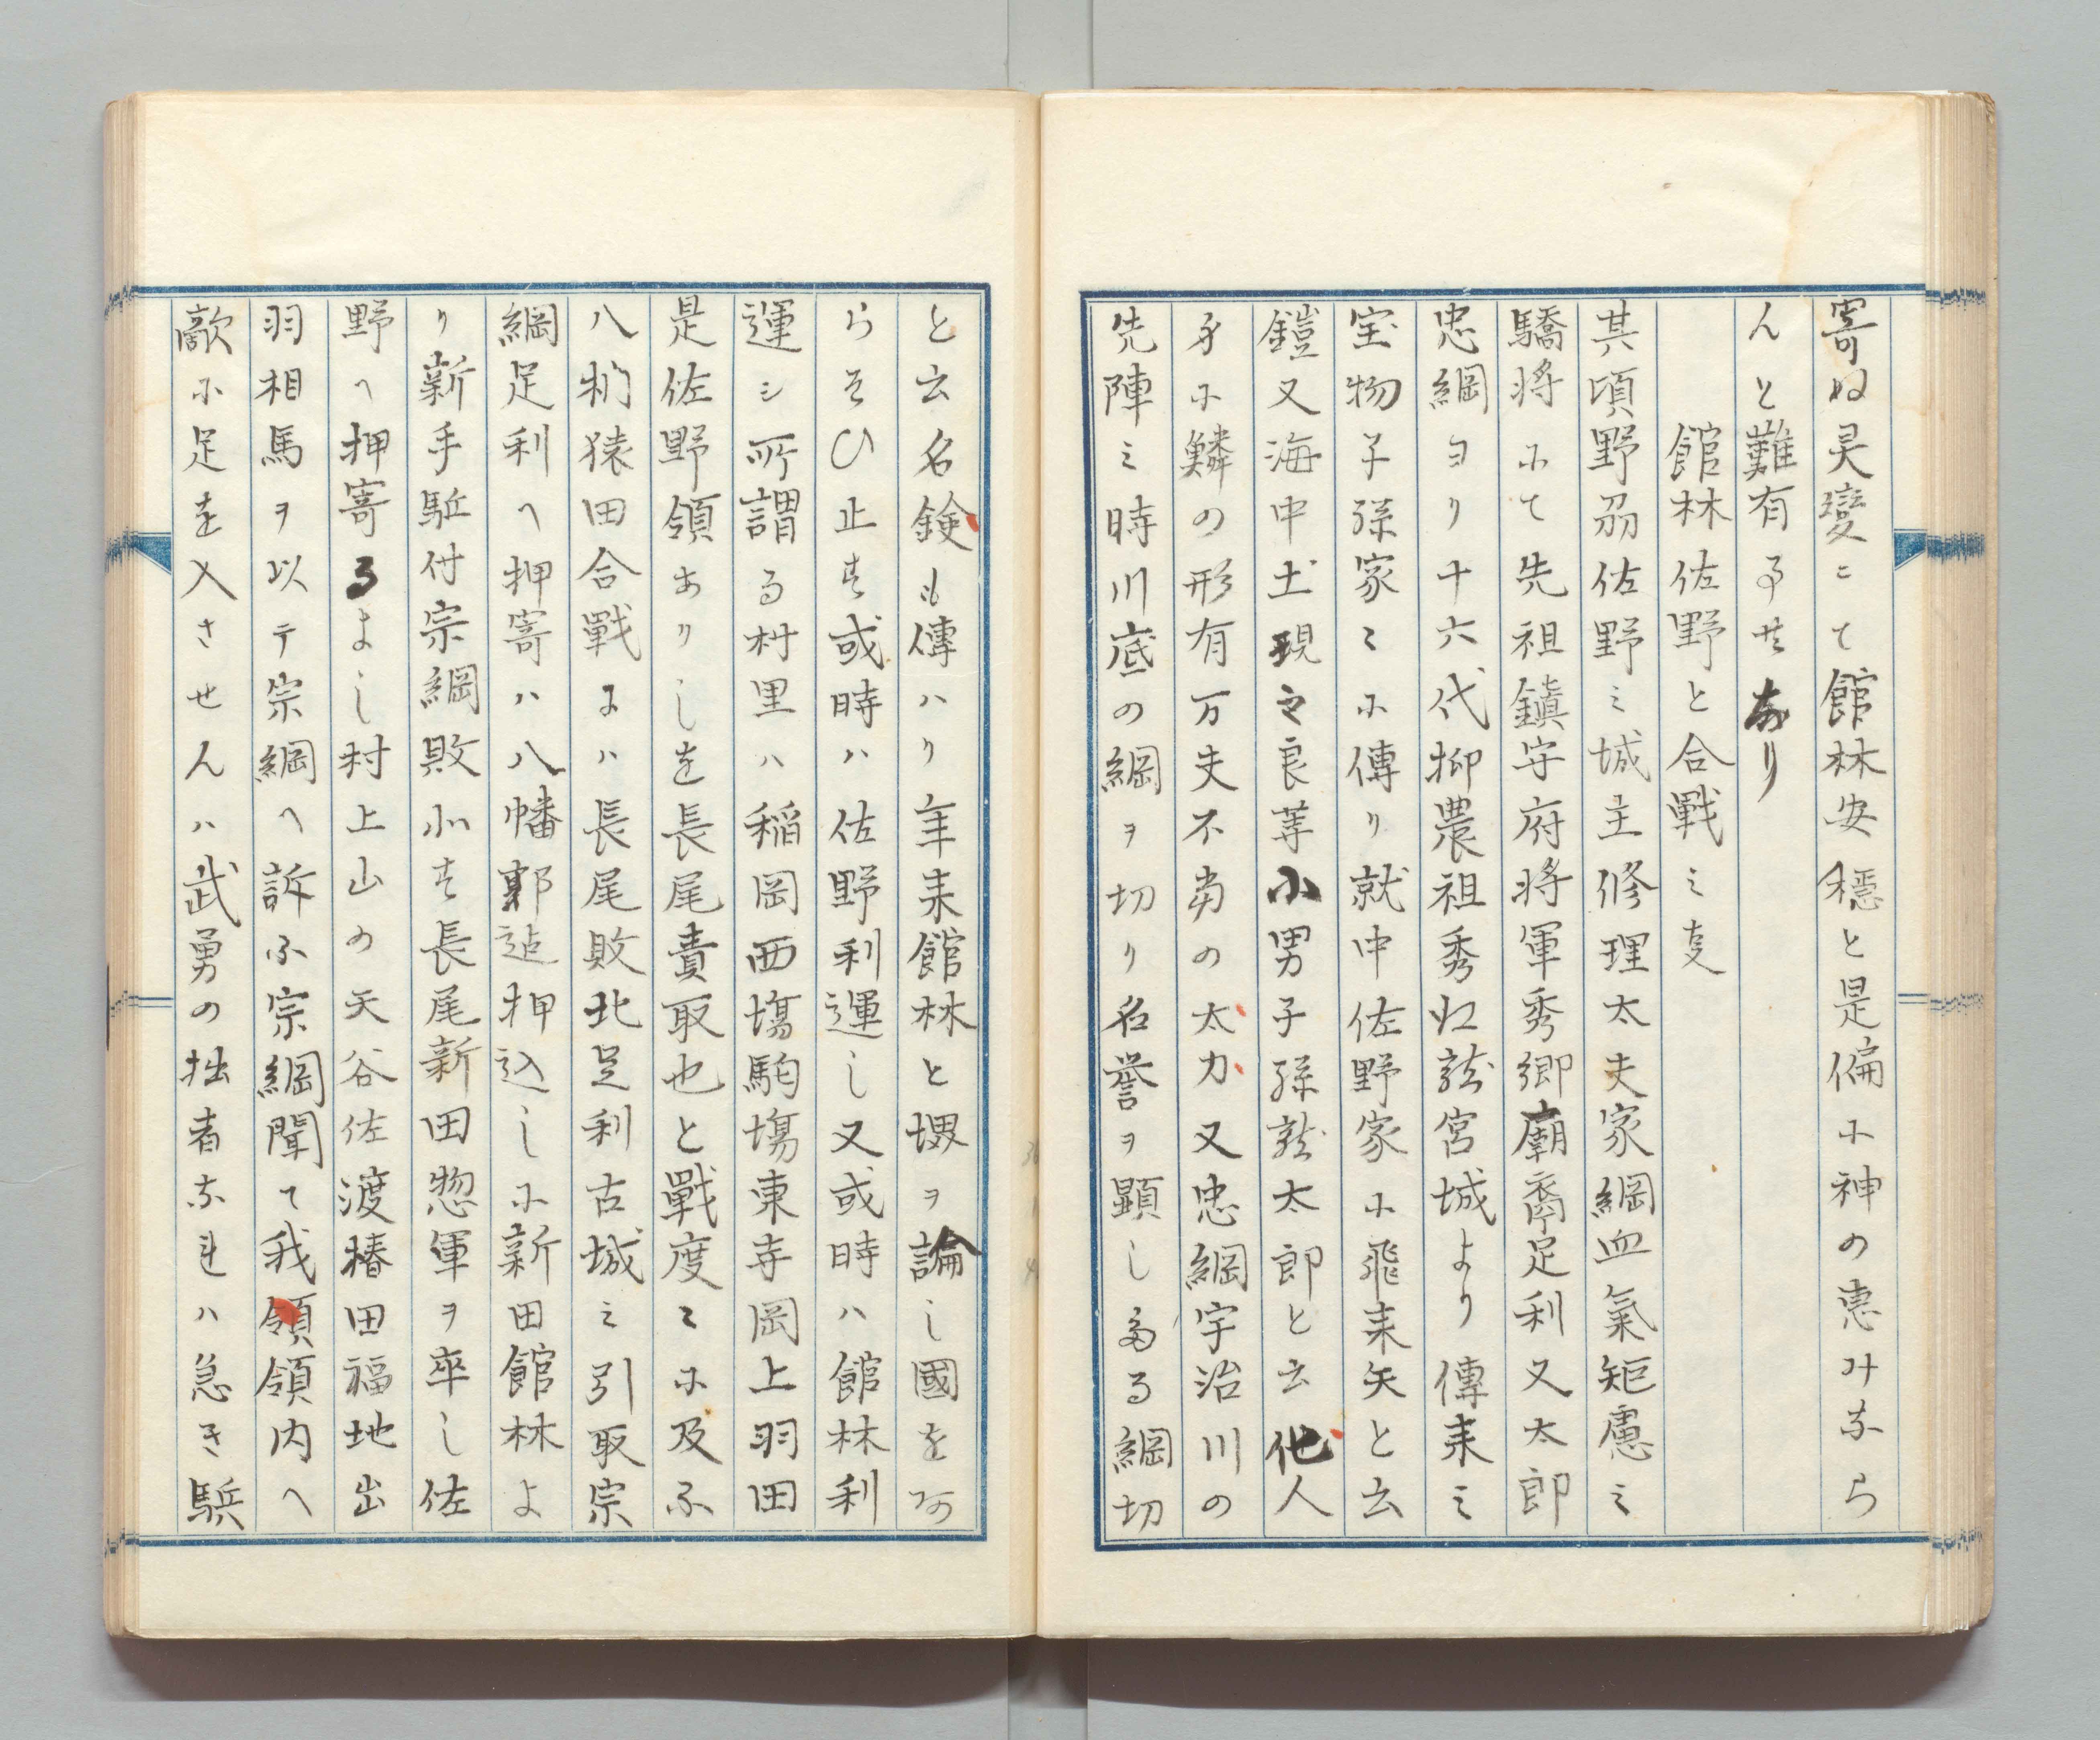 寄ぬ灵變ニて館林安穏と是偏小神の恵みなら
んと難有る事共あり
館林佐野と合戰之支
其頃野刕佐野之城主修理太夫家綱血氣短慮之
驕将小て先祖鎮守府将軍秀郷廟裔足利又太郎
忠綱ヨリ十六代抑農祖秀郷龍宮城より傳来之
宝物子孫家〻小傳り就中佐野家小飛来矢と云
鎧又海中ゟ出現之良葦小男子孫龍太郎と云他人
身小鱗の形有万夫不當の太力又忠綱宇治川の
先陣之時川底の綱ヲ切り名誉ヲ顕し多る綱切
と云名鎗も傳ハり年来館林と堺ヲ論し國をあ
らそひ止す或時ハ佐野利運し又或時ハ館林利
運シ所謂る村里ハ稲岡西塲駒塲東寺岡上羽田
是佐野領ありしを長尾責取也と戰度〻小及ふ
八椚猿田合戰よハ長尾敗北足利古城之引取宗
綱足利へ押寄ハ八幡郭迠押込し小新田館林よ
り新手駈付宗綱敗北す長尾新田惣軍ヲ卒し佐
野へ押寄るよし村上山の天谷佐渡椿田福地出
羽相馬ヲ以テ宗綱へ訴ふ宗綱聞て我領領内へ
敵小足を入させんハ武勇の拙者なれハ急き駈